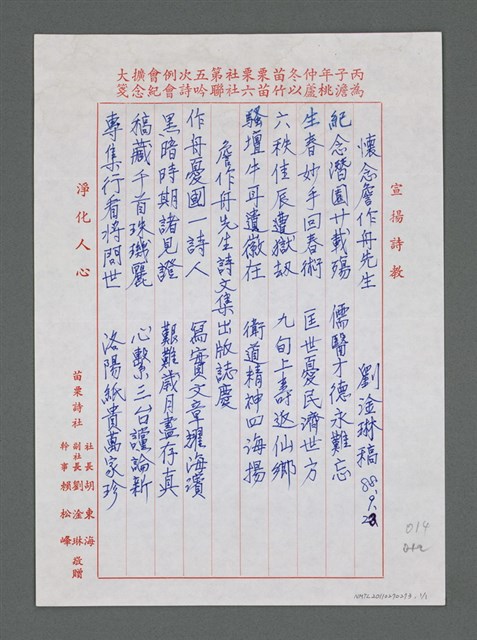 丙子年仲冬苗栗栗社第五次例會擴大
為澹桃蘆以竹苗六社聯吟詩會紀念箋
宣揚詩教
懷念詹作舟先生 劉淦琳稿 88.9.23
紀念潛園廿載殤 儒醫才德永難忘
生春妙手回春術 匡世憂民濟世方
六秩佳辰遭獄劫 九旬上壽返仙鄉
騷壇牛耳遺徽在 衛道精神四海揚
詹作舟先生詩文集出版誌慶
作舟憂國一詩人 寫實文章耀海濱
黑暗時期諸見證 艱難歲月盡存真
稿藏千首珠璣麗 心繫三台讜論新
專集行看將問世 洛陽紙貴萬家珍
淨化人心
苗栗詩社
社長胡東海
副社長劉淦琳
幹事賴松峰
敬贈
014